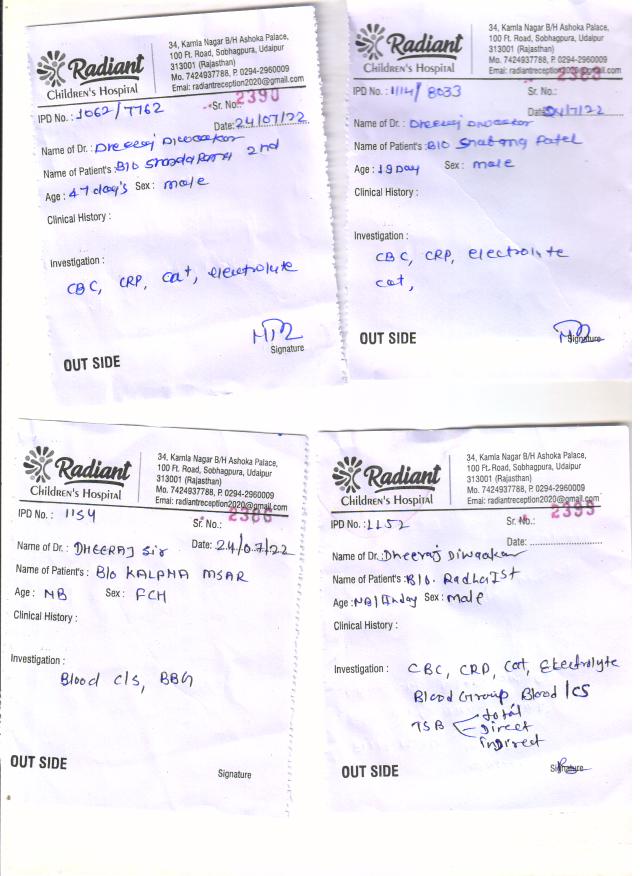 Radiant
Children's Hospital
34, Kamla Nagar B/H Ashoka Palace,
100 Ft. Road, Sobhagpura, Udaipur
313001 (Rajasthan)
Mo. 7424937788, P. 0294-2960009
Emai: radiantreception2020@gmail.com
IPD No.: 1062/7762 Sr. No.: 2390
Date: 24/07/22
Name of Dr.: Dheeraj Diwaakar
Name of Patient's: B/o 2nd
Age: 47 day's Sex: male
Clinical History:
Investigation:
CBC, CRP, Cat, electrolyte
Signature
OUT SIDE
Radiant
Children's Hospital
34, Kamla Nagar B/H Ashoka Palace,
100 Ft. Road, Sobhagpura, Udaipur
313001 (Rajasthan)
Mo. 7424937788, P. 0294-2960009
Emai: radiantreception2020@gmail.com
IPD No.: 1114/8033 Sr. No.:
Date: 24/7/22
Name of Dr.: Dheeraj Diwaakar
Name of Patient's: B/o Patel
Age: 19 Day Sex: male
Clinical History:
Investigation:
CBC, CRP, electrolyte
cat,
OUT SIDE
Signature
Radiant
Children's Hospital
34, Kamla Nagar B/H Ashoka Palace,
100 Ft. Road, Sobhagpura, Udaipur
313001 (Rajasthan)
Mo. 7424937788, P. 0294-2960009
Emai: radiantreception2020@gmail.com
IPD No.: 1154 Sr. No.:
Name of Dr.: DHEERAJ Sir Date: 24/07/22
Name of Patient's: B/o KALPNA MSAR
Age: NB Sex: FCH
Clinical History:
Investigation:
Blood C/S, BBG
OUT SIDE
Signature
Radiant
Children's Hospital
34, Kamla Nagar B/H Ashoka Palace,
100 Ft. Road, Sobhagpura, Udaipur
313001 (Rajasthan)
Mo. 7424937788, P. 0294-2960009
Emai: radiantreception2020@gmail.com
IPD No.: 1152 Sr. No.:
Date:
Name of Dr.: Dheeraj Diwaakar
Name of Patient's: B/o. Radha Ist
Age: NB/ Sex: male
Clinical History:
Investigation: CBC, CRP, Cat, Electrolyte
Blood Group Blood ICS
TSB total
direct
indirect
OUT SIDE
Signature